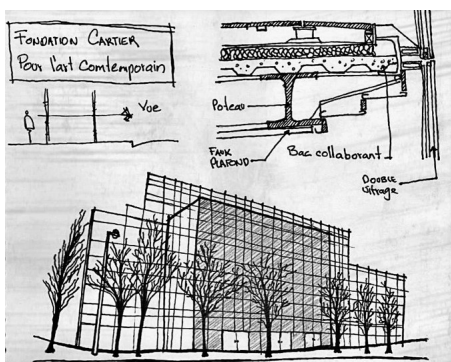 FONDATION CARTIER
Pour l'art Comtemporain
Vue
Poteau
FAUX
PLAFOND
Bac collaborant
DOUBLE
vitrage